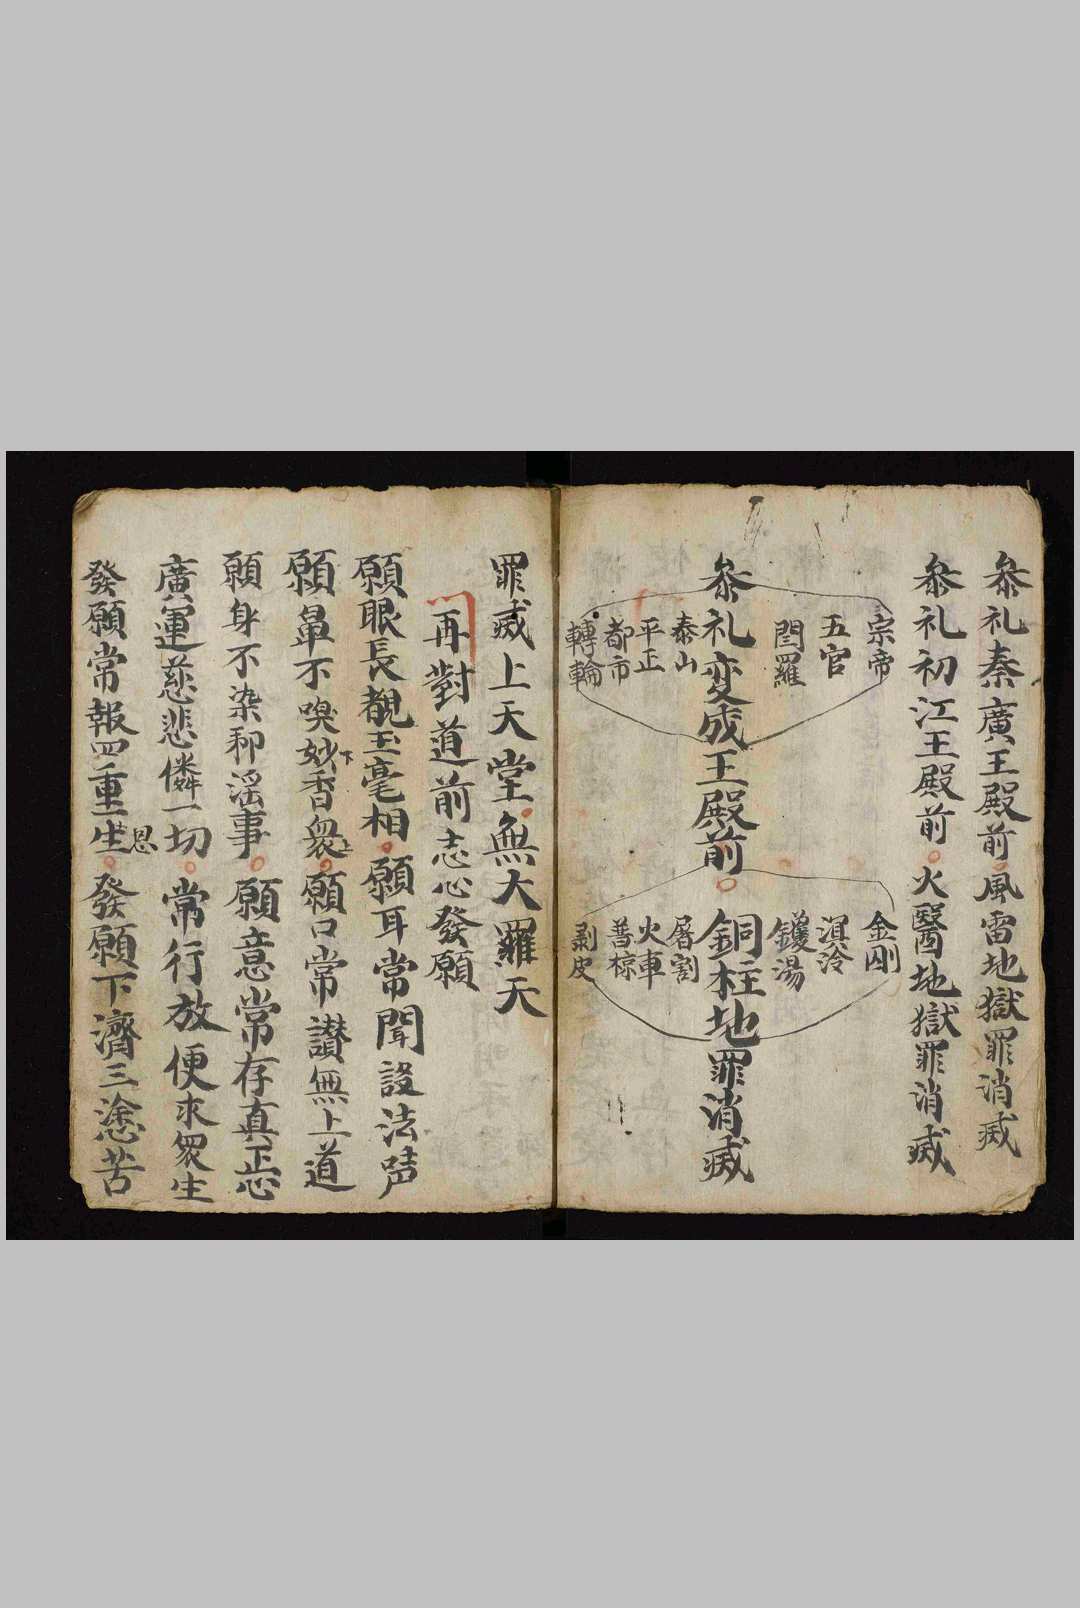 叅礼秦廣王殿前風雷地獄罪消滅
叅礼初江王殿前火醫地獄罪消滅
宗帝
五官
閻羅
金剛
溟泠
鑊湯
叅礼变成王殿前銅柱地罪消滅
泰山
平正
都市
轉輪
屠割
火車
普椋
剥皮
罪滅上天堂無大羅天
再對道前志心發願
願眼長觀玉毫相願耳常聞說法声
願鼻不嗅妙香衆願口常讃無上道
下
上
願身不染邪滛事願意常存真正心
廣運慈悲憐一切常行放便求衆生
發願常報四重生發願下濟三塗苦
恩